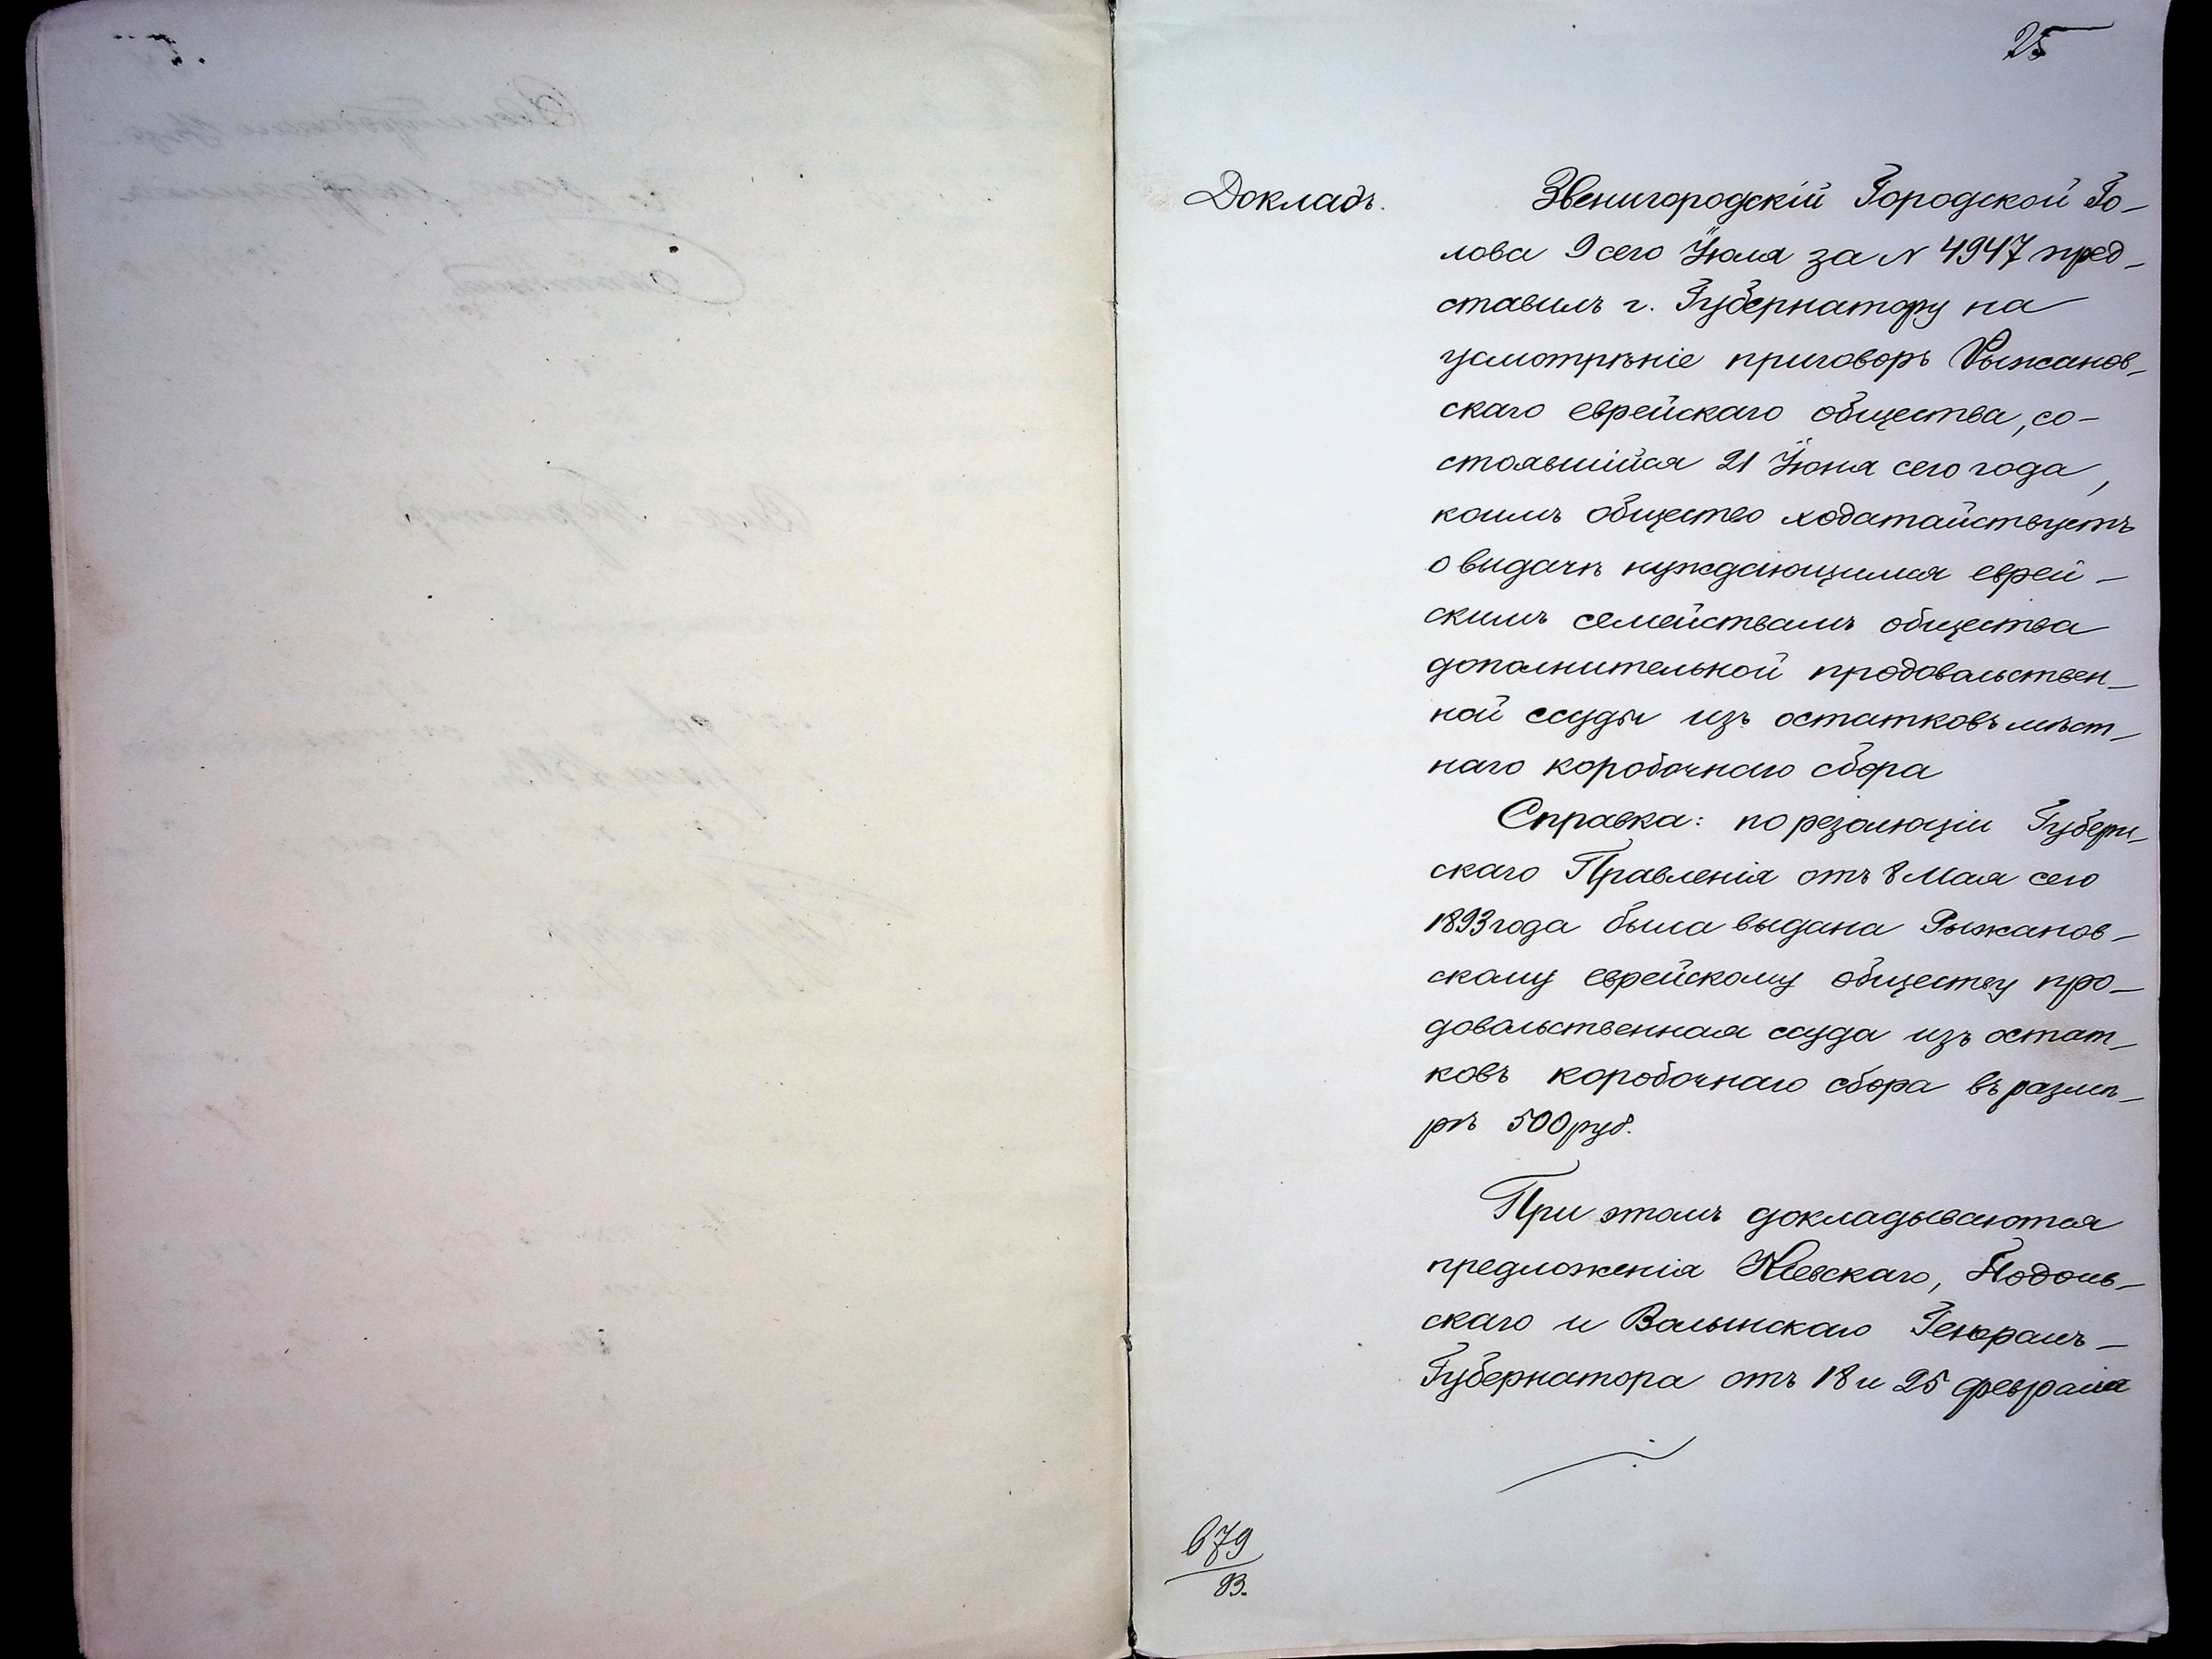 25
Докладъ.
Звенигородскій Городской Го-
лова 9 сего Іюля за N 4947 пред-
ставилъ г. Губернатору на
усмотрѣніе приговоръ Рыжанов-
скаго еврейскаго общества, со-
стоявшійся 21 Іюня сего года,
коимъ общество ходатайствуетъ
о выдачѣ нуждающимся еврей-
скимъ семействамъ общества
дополнительной продовольствен-
ной ссуды изъ остатковъ мѣст-
наго коробочнаго сбора
Справка: по резолюціи Губерн-
скаго Правленія отъ 8 Мая сего
1893 года была выдана Рыжанов-
скому еврейскому обществу про-
довольственная ссуда изъ остат-
ковъ коробочнаго сбора въ размѣ-
рѣ 500 руб.
При этомъ докладываются
предложенія Кіевскаго, Подоль-
скаго и Волынскаго Генералъ-
Губернатора отъ 18 и 25 февраля
679
93.